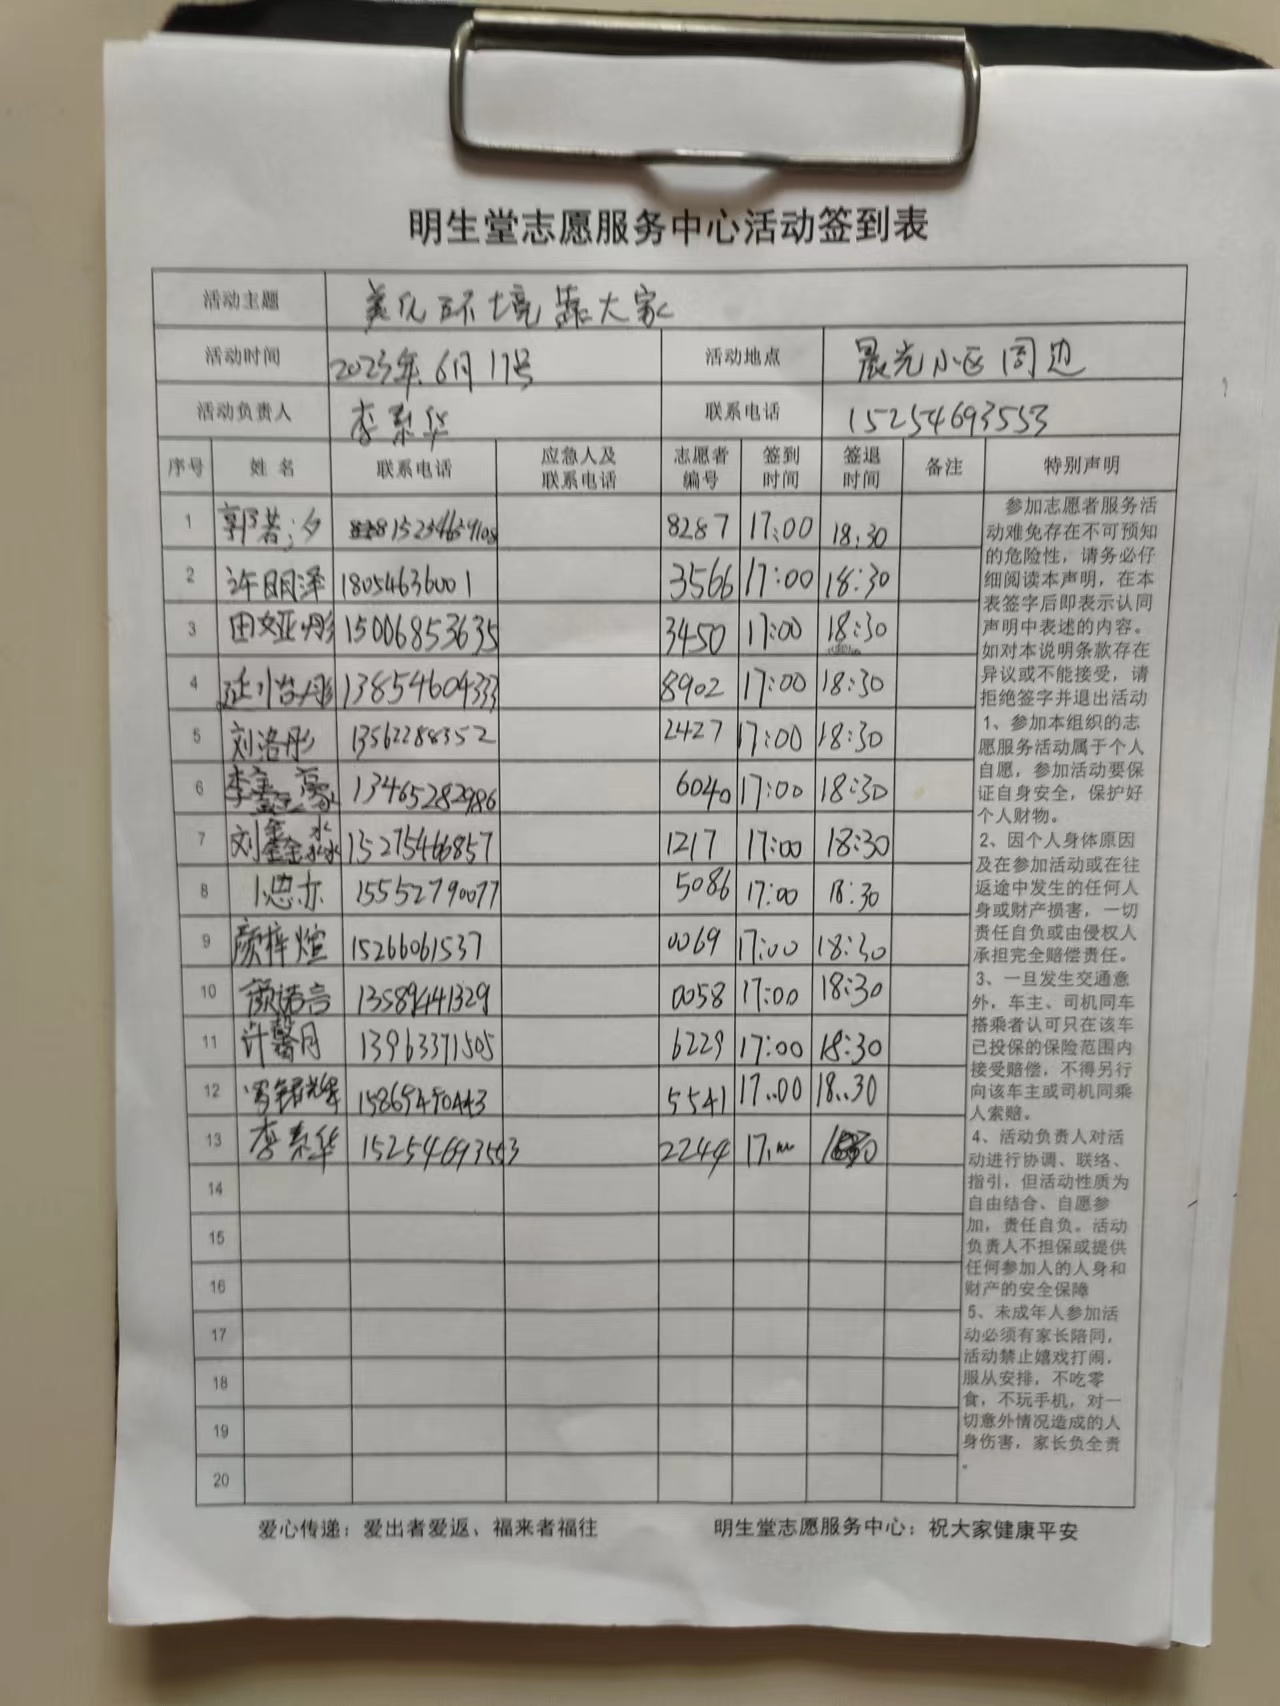 明生堂志愿服务中心活动签到表
活动主题 美化环境靠大家
活动时间 2023年6月17号 活动地点 晨光小区周边
活动负责人 李素华 联系电话 15254693553
序号 姓名 联系电话 应急人及联系电话 志愿者编号 签到时间 签退时间 备注 特别声明
1 郭若汐 8287 17:00 18:30
2 许明泽 18054636001 3566 17:00 18:30
3 田娅彤 15006853635 3450 17:00 18:30
4 13854604333 8902 17:00 18:30
5 刘洛彤 13562288352 2427 17:00 18:30
6 李鑫豪 13465282986 6040 17:00 18:30
7 刘鑫淼 15275466857 1217 17:00 18:30
8 15552790077 5086 17:00 18:30
9 颜梓煊 15266061537 0069 17:00 18:30
10 颜诺言 13589441329 0058 17:00 18:30
11 许馨月 13963371505 6229 17:00 18:30
12 5541 17:00 18:30
13 李素华 15254693553 2244
14
15
16
17
18
19
20
参加志愿者服务活
动难免存在不可预知
的危险性，请务必仔
细阅读本声明，在本
表签字后即表示认同
声明中表述的内容。
如对本说明条款存在
异议或不能接受，请
拒绝签字并退出活动
1、参加本组织的志
愿服务活动属于个人
自愿，参加活动要保
证自身安全，保护好
个人财物。
2、因个人身体原因
及在参加活动或在往
返途中发生的任何人
身或财产损害，一切
责任自负或由侵权人
承担完全赔偿责任。
3、一旦发生交通意
外，车主、司机同车
搭乘者认可只在该车
已投保的保险范围内
接受赔偿，不得另行
向该车主或司机同乘
人索赔。
4、活动负责人对活
动进行协调、联络、
指引，但活动性质为
自由结合、自愿参
加，责任自负。活动
负责人不担保或提供
任何参加人的人身和
财产的安全保障
5、未成年人参加活
动必须有家长陪同，
活动禁止嬉戏打闹，
服从安排，不吃零
食，不玩手机，对一
切意外情况造成的人
身伤害，家长负全责
。
爱心传递：爱出者爱返、福来者福往 明生堂志愿服务中心：祝大家健康平安